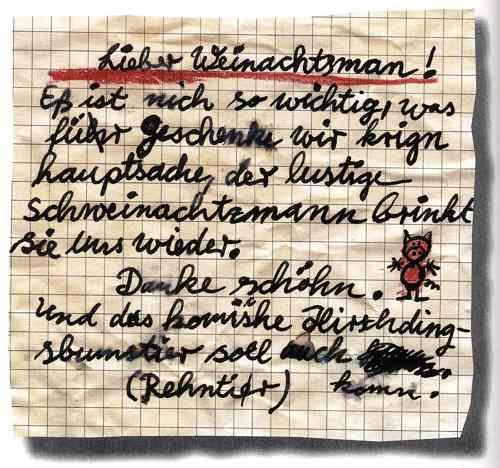 Lieber Weinachtzman!
Eß ist nich so wichtig, was
führ Geschenke wir krign
hauptsache, der lustige
Schweinachtzmann brinkt
sie uns wieder.
Danke schöhn.
Und das komishe Hirschding-
sbumstier soll auch
(Rehntier) komn.